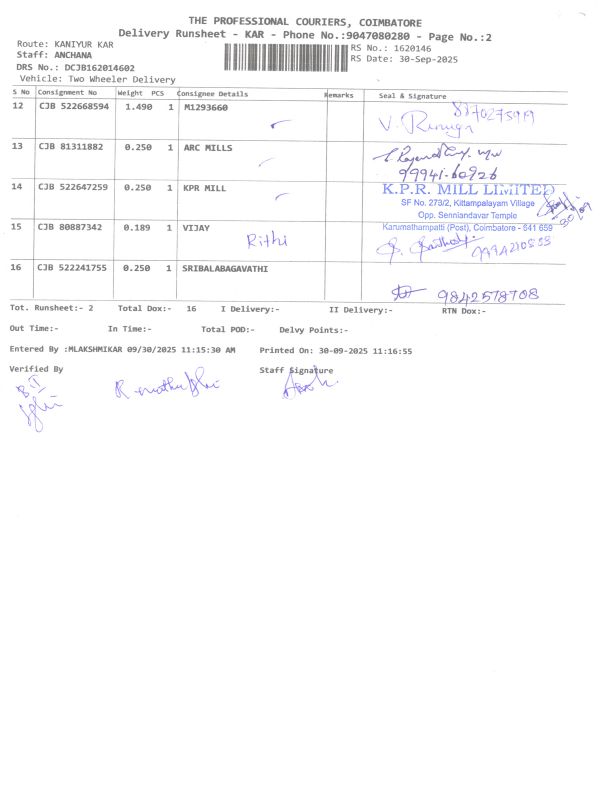 THE PROFESSIONAL COURIERS, COIMBATORE
Delivery Runsheet - KAR - Phone No.:9047080280 - Page No.:2
Route: KANIYUR KAR
RS No.: 1620146
Staff: ANCHANA
RS Date: 30-Sep-2025
DRS No.: DCJB162014602
Vehicle: Two Wheeler Delivery
S No Consignment No Weight PCS Consignee Details Remarks Seal & Signature
12 CJB 522668594 1.490 1 M1293660
13 CJB 81311882 0.250 1 ARC MILLS
99941-60926
14 CJB 522647259 0.250 1 KPR MILL
K.P.R. MILL LIMITED
SF No. 273/2, Kittampalayam Village
Opp. Senniandavar Temple
Karumathampatti (Post), Coimbatore - 641 659
30/09
15 CJB 80887342 0.189 1 VIJAY
Rithi
16 CJB 522241755 0.250 1 SRIBALABAGAVATHI
9842578708
Tot. Runsheet:- 2 Total Dox:- 16 I Delivery:- II Delivery:- RTN Dox:-
Out Time:- In Time:- Total POD:- Delvy Points:-
Entered By :MLAKSHMIKAR 09/30/2025 11:15:30 AM Printed On: 30-09-2025 11:16:55
Verified By Staff Signature